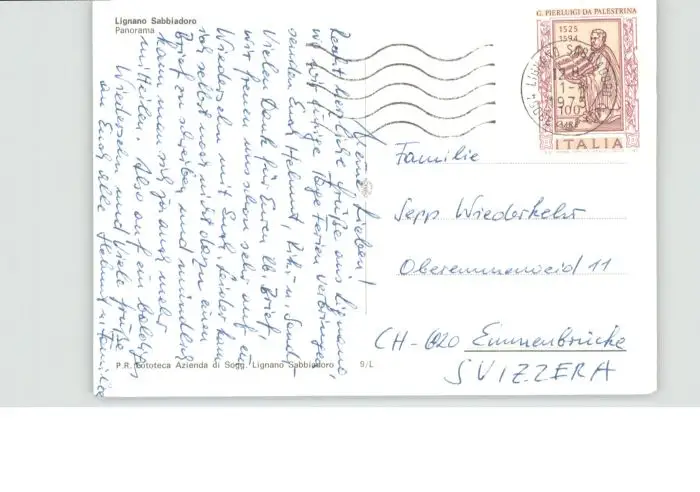 Lignano Sabbiadoro
Panorama
Meine Lieben!
Recht herzliche Grüße aus Lignano,
wo wir einige Tage Ferien verbringen,
senden Euch Helmut, und
Vielen Dank für Euren lb. Brief,
wir freuen uns schon sehr auf ein
Wiedersehn mit Euch. Leider kam
ich selbst noch nicht dazu einen
Brief zu schreiben, und mündlich
kann man sich ja auch mehr
mitteilen. Also auf ein baldiges
Wiedersehn und viele Grüße
an Euch alle Helmut u. Familie
P.R. Fototeca Azienda di Sogg. Lignano Sabbiadoro 9/L
G. PIERLUIGI DA PALESTRINA
1525
1594
LIGNANO
1975
100
LIRE
ITALIA
Familie
Sepp Wiederkehr
Oberemmenweid 11
CH-6020 Emmenbrücke
SVIZZERA